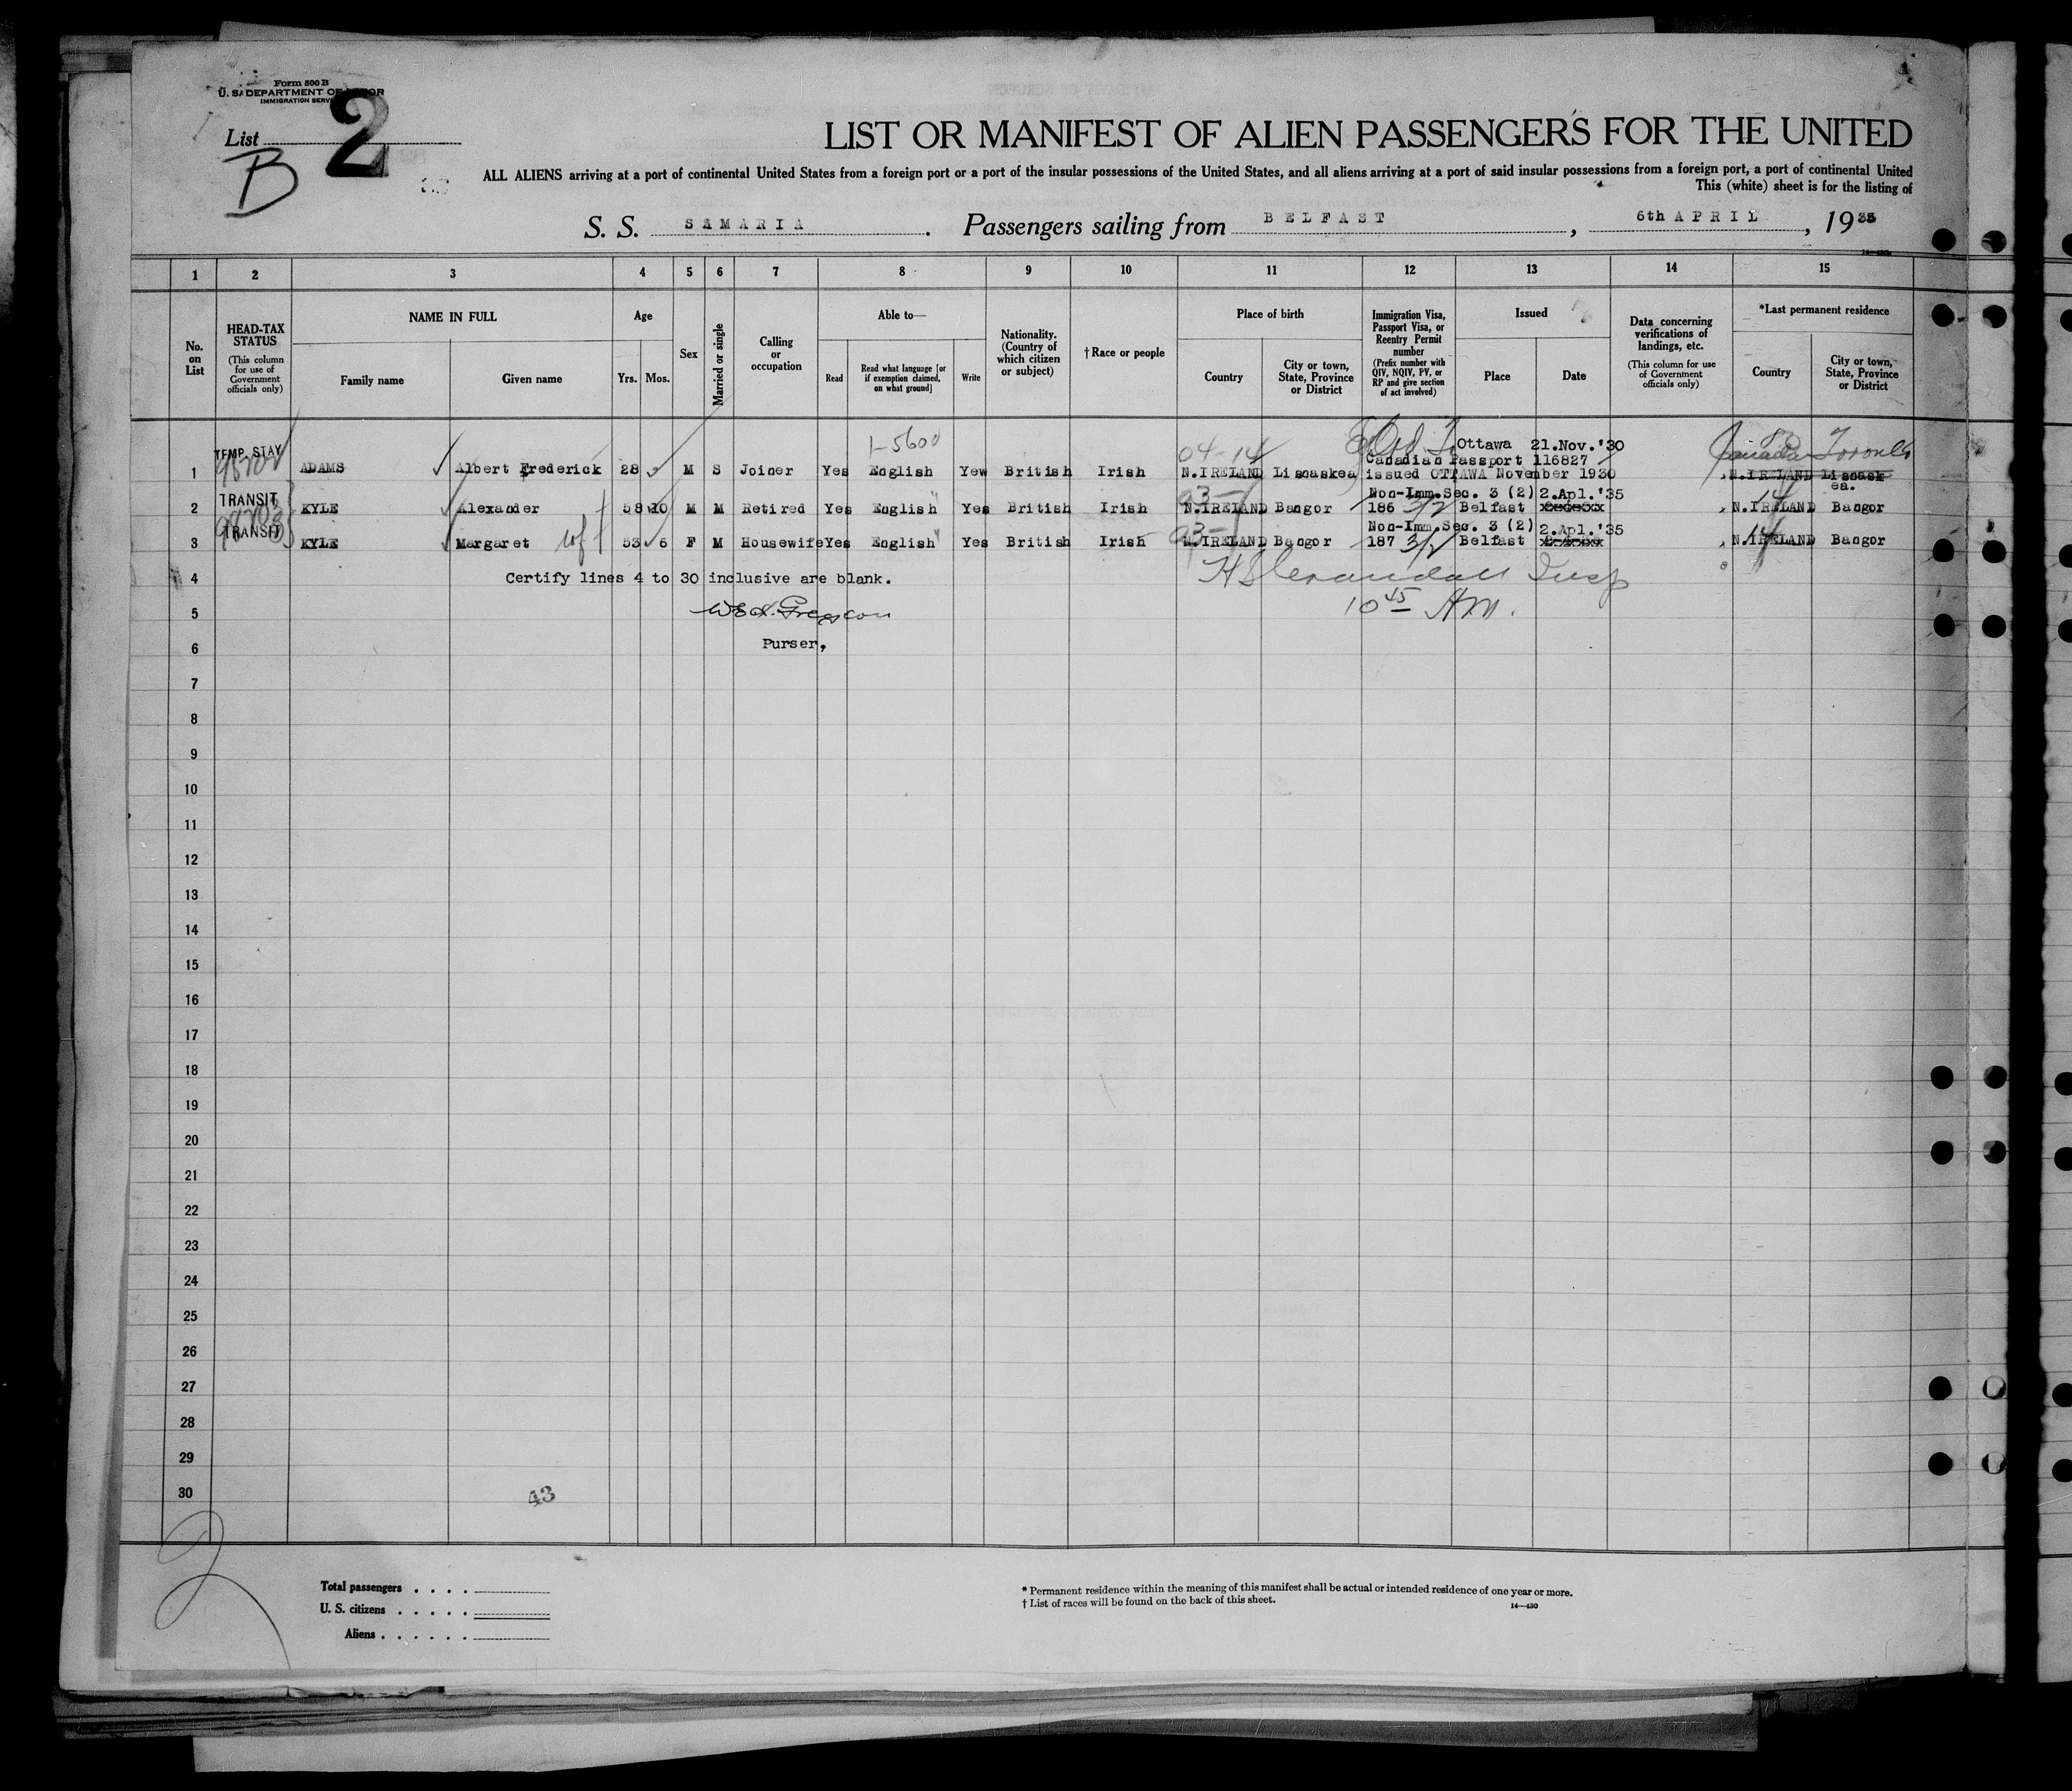 Form 500 B
U. S. DEPARTMENT OF LABOR
IMMIGRATION SERVICE
List 2
B
LIST OR MANIFEST OF ALIEN PASSENGERS FOR THE UNITED
ALL ALIENS arriving at a port of continental United States from a foreign port or a port of the insular possessions of the United States, and all aliens arriving at a port of said insular possessions from a foreign port, a port of continental United
This (white) sheet is for the listing of
S. S. SAMARIA. Passengers sailing from BELFAST, 6th APRIL, 1935
14—430
1 2 3 4 5 6 7 8 9 10 11 12 13 14 15
No. on List
HEAD-TAX STATUS (This column for use of Government officials only)
NAME IN FULL
Family name Given name
Age
Yrs. Mos.
Sex
Married or single
Calling or occupation
Able to—
Read Read what language [or if exemption claimed, on what ground] Write
Nationality. (Country of which citizen or subject)
†Race or people
Place of birth
Country City or town, State, Province or District
Immigration Visa, Passport Visa, or Reentry Permit number (Prefix number with QIV, NQIV, PV, or RP and give section of act involved)
Issued
Place Date
Data concerning verifications of landings, etc. (This column for use of Government officials only)
*Last permanent residence
Country City or town, State, Province or District
1-5600 04-14 Ottawa 21.Nov.'30 Canada Toronto
TEMP. STAY Canadian Passport 116827
1 ADAMS Albert Frederick 28 M S Joiner Yes English Yew British Irish N.IRELAND Lisnaskea issued OTTAWA November 1930 N.IRELAND Lisnask
ea.
TRANSIT Non-Imm.Sec. 3 (2) 2.Apl.'35
2 KYLE Alexander 58 10 M M Retired Yes English Yes British Irish N.IRELAND Bangor 186 3/2 Belfast xxxxxxx N.IRELAND Bangor
TRANSIT Non-Imm.Sec. 3 (2) 2.Apl.'35
3 KYLE Margaret wf 53 6 F M Housewife Yes English Yes British Irish N.IRELAND Bangor 187 3/2 Belfast xxxxxxx N.IRELAND Bangor
4 Certify lines 4 to 30 inclusive are blank. Insp
5 10 45 AM.
6 Purser,
7
8
9
10
11
12
13
14
15
16
17
18
19
20
21
22
23
24
25
26
27
28
29
30
43
2
Total passengers . . . .
U. S. citizens . . . . .
Aliens . . . . . .
* Permanent residence within the meaning of this manifest shall be actual or intended residence of one year or more.
† List of races will be found on the back of this sheet.
14—430